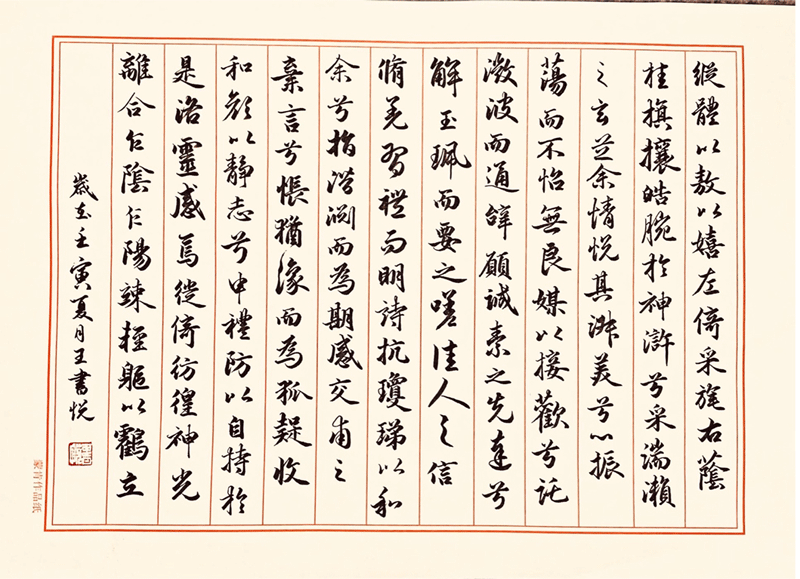 縱體以敖以嬉左倚采旄右蔭
桂旗攘皓腕於神滸兮采湍瀨
之玄芝余情悅其淑美兮心振
蕩而不怡無良媒以接歡兮託
微波而通辭願誠素之先達兮
解玉珮而要之嗟佳人之信
脩羌習禮而明詩抗瓊珶以和
余兮指潛淵而為期感交甫之
棄言兮悵猶豫而為狐疑收
和顏以靜志兮申禮防以自持於
是洛靈感焉徙倚彷徨神光
離合乍陰乍陽竦輕軀以鶴立
歲在壬寅夏月王書悅
蒙肯作品紙